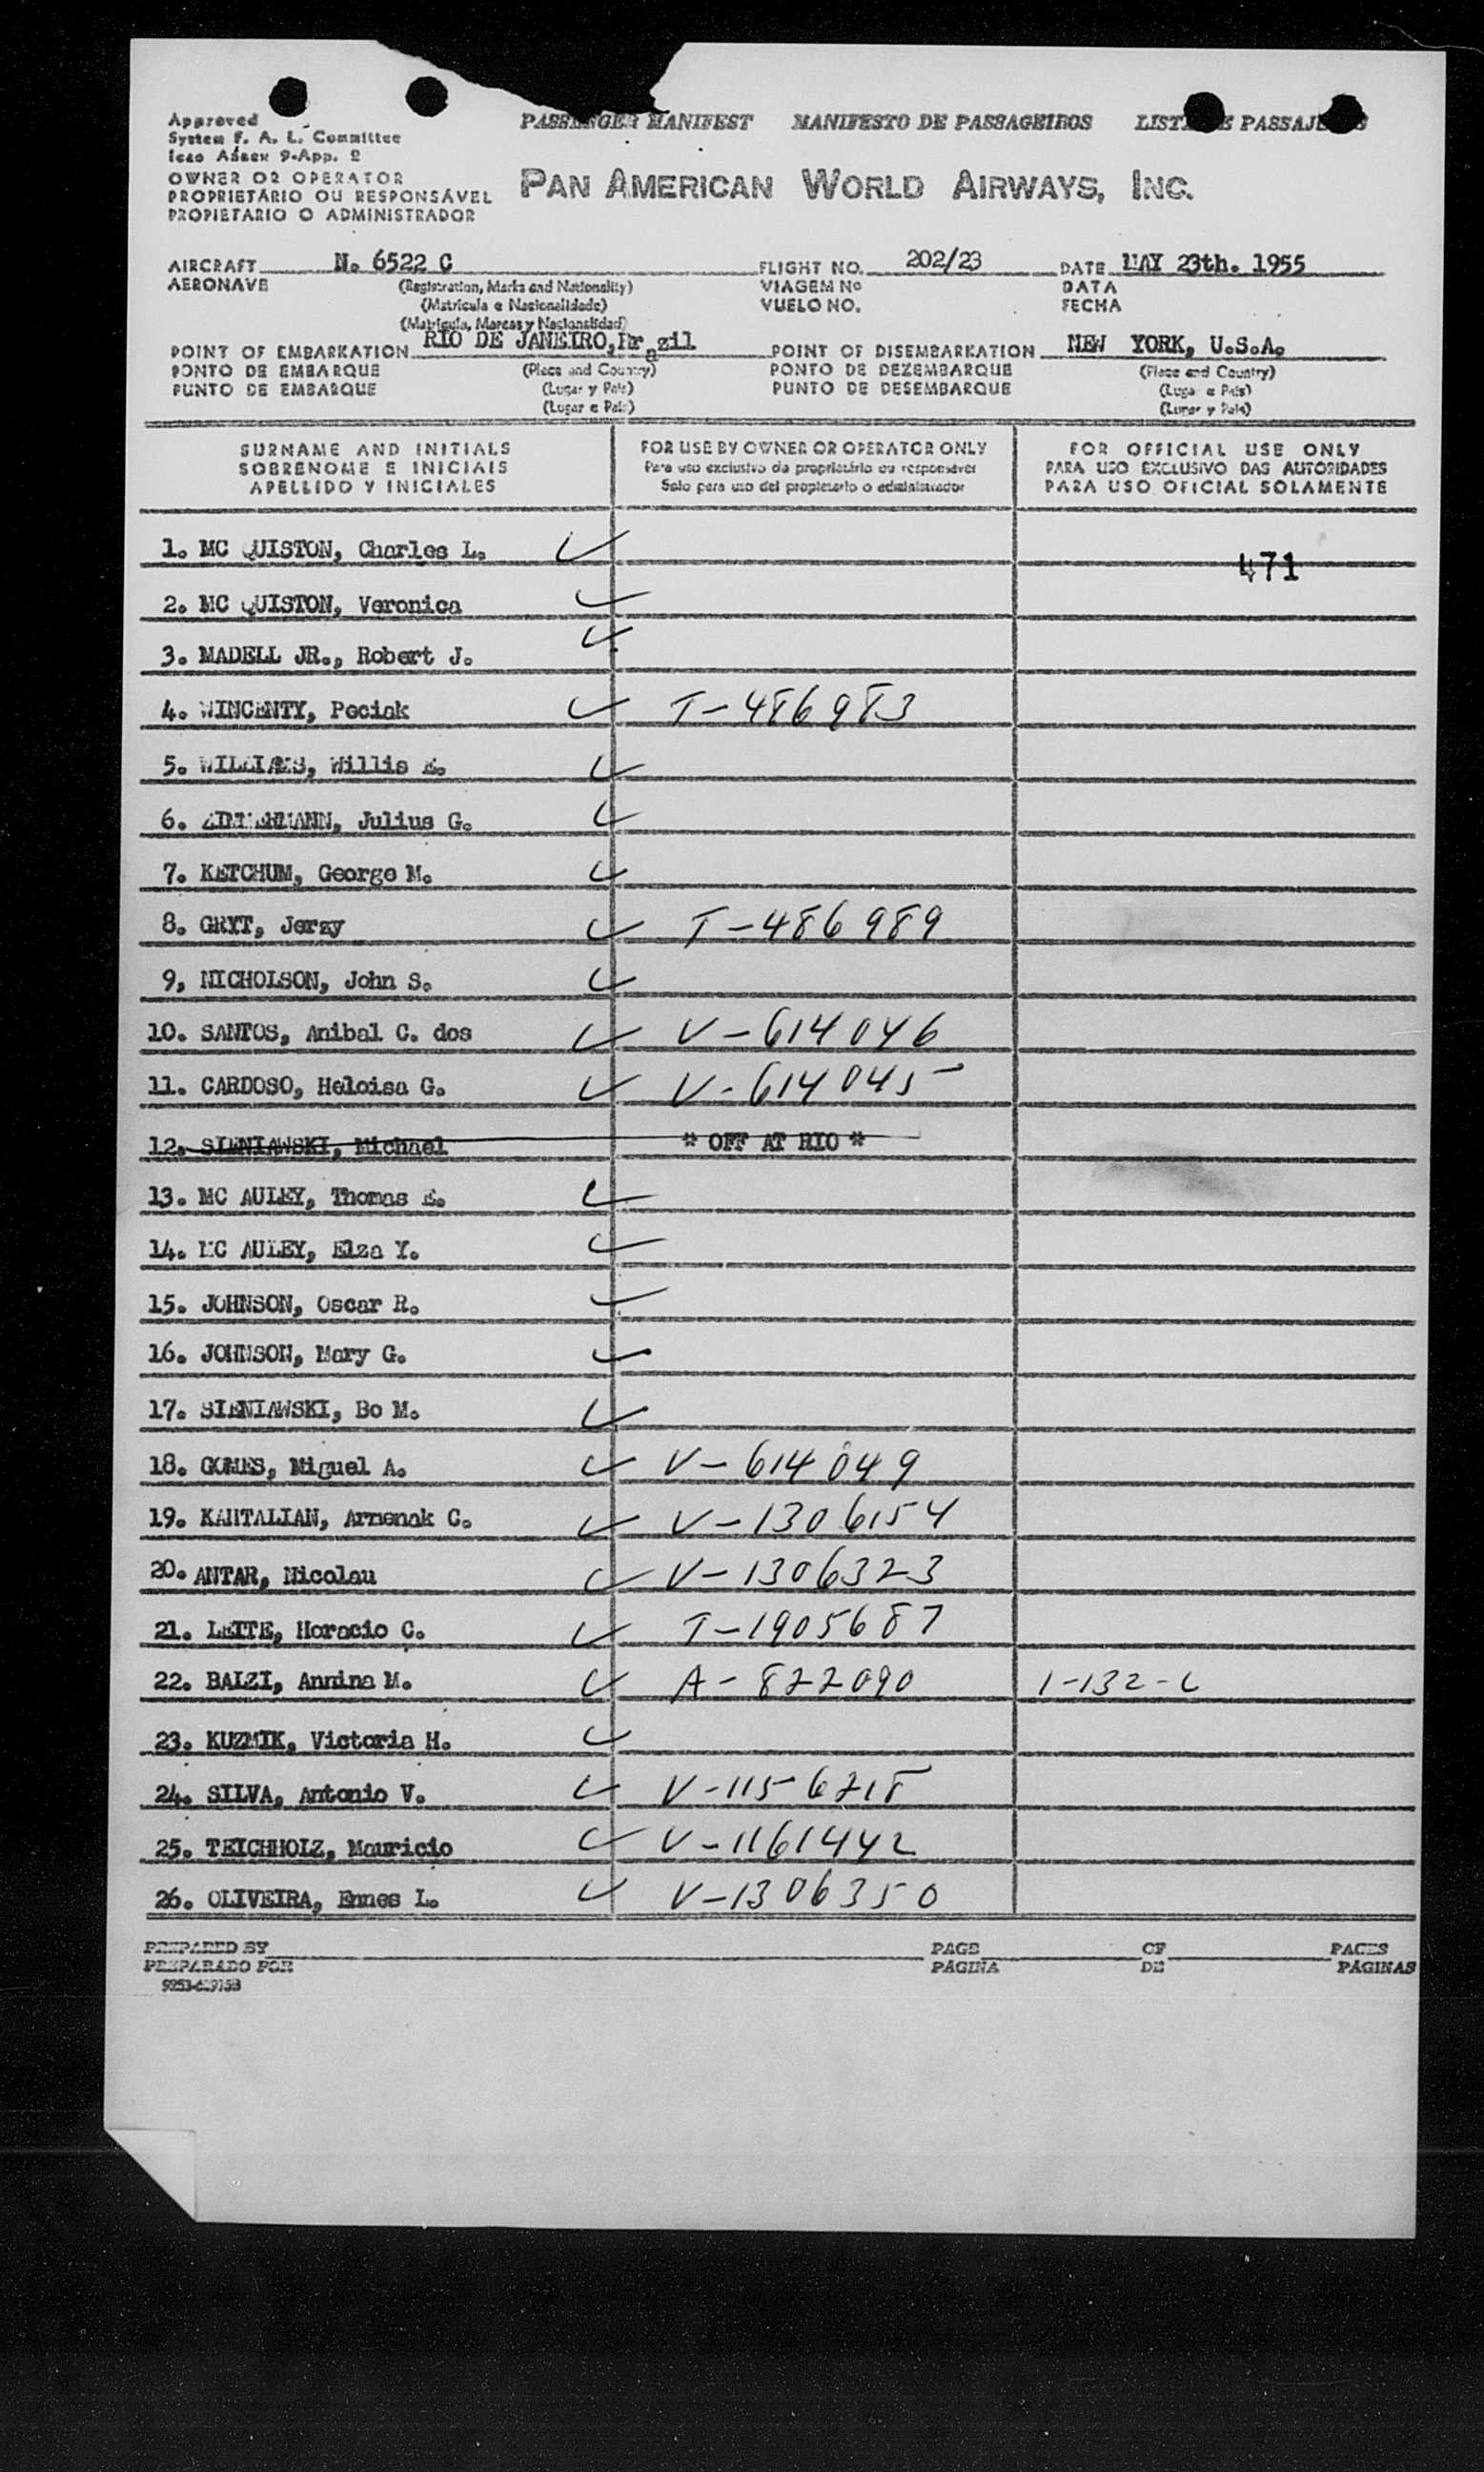 Approved
System F. A. L. Committee
Icao Annex 9-App. 2
PASSENGER MANIFEST MANIFESTO DE PASSAGEIROS LISTA DE PASSAJEROS
OWNER OR OPERATOR
PROPRIETÁRIO OU RESPONSÁVEL
PROPIETARIO O ADMINISTRADOR
PAN AMERICAN WORLD AIRWAYS, INC.
AIRCRAFT N. 6522 C FLIGHT NO. 202/23 DATE MAY 23th. 1955
AERONAVE (Registration, Marks and Nationality) VIAGEM Nº DATA
(Matrícula e Nacionalidade) VUELO NO. FECHA
(Matrícula, Marcas y Nacionalidad)
POINT OF EMBARKATION RIO DE JANEIRO, Brazil POINT OF DISEMBARKATION NEW YORK, U.S.A.
PONTO DE EMBARQUE (Place and Country) PONTO DE DEZEMBARQUE (Place and Country)
PUNTO DE EMBARQUE (Lugar y País) PUNTO DE DESEMBARQUE (Lugar e País)
(Lugar e País) (Lugar y País)
SURNAME AND INITIALS FOR USE BY OWNER OR OPERATOR ONLY FOR OFFICIAL USE ONLY
SOBRENOME E INICIAIS Para uso exclusivo do proprietário ou responsável PARA USO EXCLUSIVO DAS AUTORIDADES
APELLIDO Y INICIALES Solo para uso del propietario o administrador PARA USO OFICIAL SOLAMENTE
1. MC QUISTON, Charles L. ✓ 471
2. MC QUISTON, Veronica ✓
3. MADELL JR., Robert J. ✓
4. WINCENTY, Peciak ✓ T-486983
5. WILLIAMS, Willis E. ✓
6. ZIMMERMANN, Julius G. ✓
7. KETCHUM, George M. ✓
8. GRYT, Jerzy ✓ T-486989
9, NICHOLSON, John S. ✓
10. SANTOS, Anibal C. dos ✓ V-614046
11. CARDOSO, Heloisa G. ✓ V-614045
12. SIENIAWSKI, Michael * OFF AT RIO *
13. MC AULEY, Thomas E. ✓
14. MC AULEY, Elza Y. ✓
15. JOHNSON, Oscar R. ✓
16. JOHNSON, Mary G. ✓
17. SIENIAWSKI, Bo M. ✓
18. GOMES, Miguel A. ✓ V-614049
19. KAHTALIAN, Armenak C. ✓ V-1306154
20. ANTAR, Nicolau ✓ V-1306323
21. LEITE, Horacio C. ✓ T-1905687
22. BALZI, Annina M. ✓ A-822090 1-132-C
23. KUZMIK, Victoria H. ✓
24. SILVA, Antonio V. ✓ V-1156718
25. TEICHHOLZ, Mauricio ✓ V-1161442
26. OLIVEIRA, Ennes L. ✓ V-1306350
PREPARED BY PAGE OF PAGES
PREPARADO POR PÁGINA DE PÁGINAS